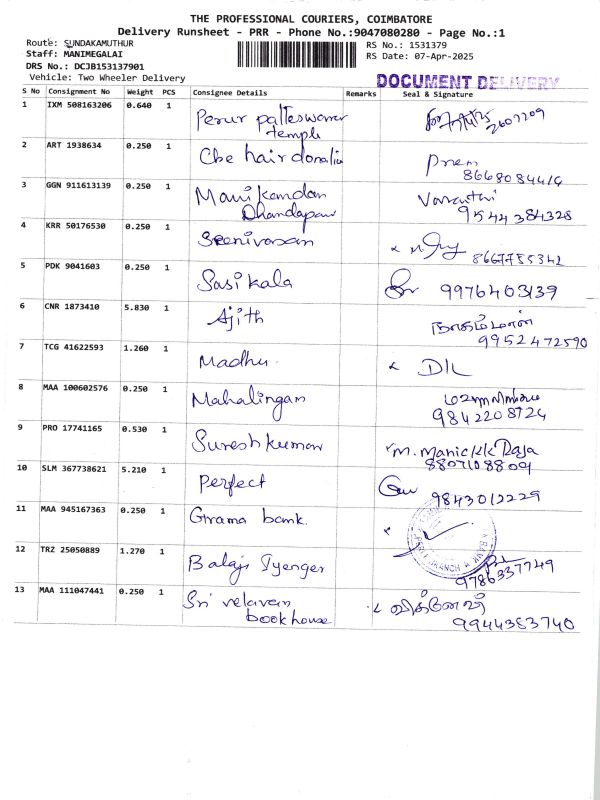 THE PROFESSIONAL COURIERS, COIMBATORE
Delivery Runsheet - PRR - Phone No.:9047080280 - Page No.:1
Route: SUNDAKAMUTHUR
Staff: MANIMEGALAI
DRS No.: DCJB153137901
Vehicle: Two Wheeler Delivery
RS No.: 1531379
RS Date: 07-Apr-2025
DOCUMENT DELIVERY
S No Consignment No Weight PCS Consignee Details Remarks Seal & Signature
1 IXM 508163206 0.640 1 Perur patteswarar
temple
2 ART 1938634 0.250 1 Cbe hair donatio Prem
8668084416
3 GGN 911613139 0.250 1 Manikandan
Dhandapani
9544384328
4 KRR 50176530 0.250 1 Seenivasan
8667785342
5 PDK 9041603 0.250 1 Sasikala 9976403139
6 CNR 1873410 5.830 1 Ajith
9952472590
7 TCG 41622593 1.260 1 Madhu
8 MAA 100602576 0.250 1 Mahalingam
9842208724
9 PRO 17741165 0.530 1 Sureshkumar M. Manickk Raja
10 SLM 367738621 5.210 1 perfect 9843012229
11 MAA 945167363 0.250 1 Grama bank.
12 TRZ 25050889 1.270 1 Balaji Iyenger
9786337749
13 MAA 111047441 0.250 1 Sri velavan
book house
9944383740